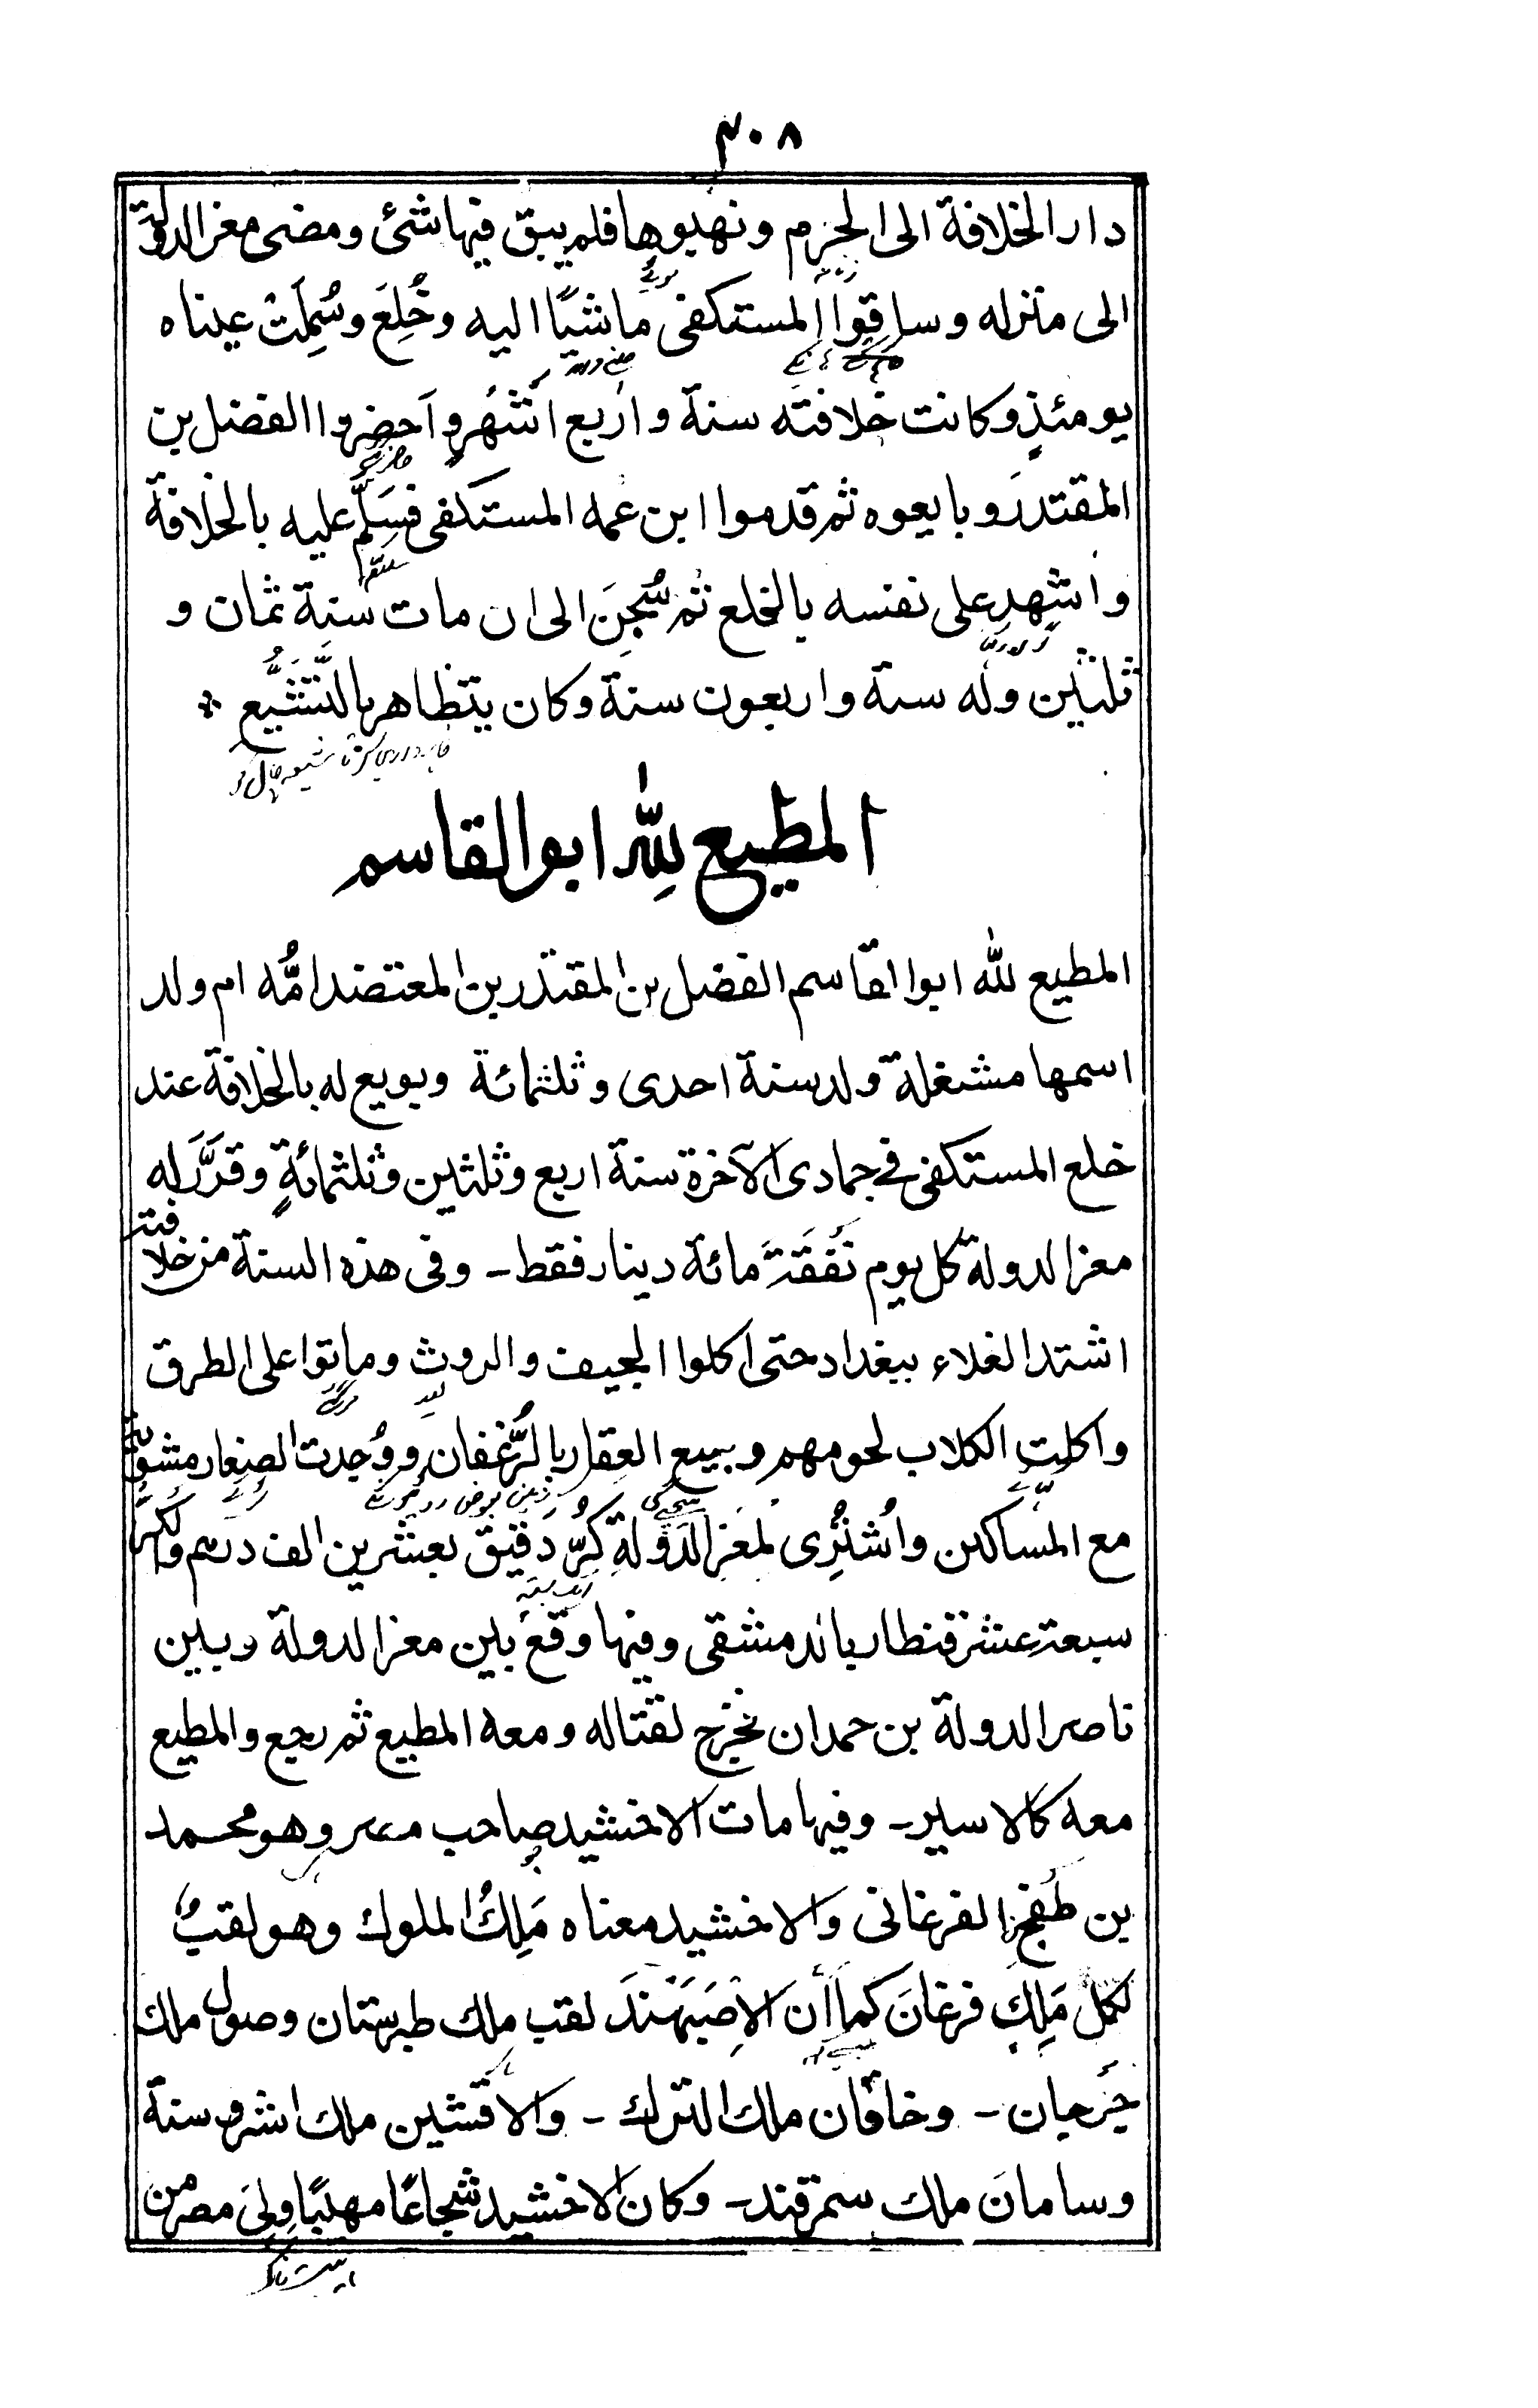 ۳۰۸
دار الخلافة الى الحرم ونهبوها فلم يبق فيها شئ ومضى معز الدولة
الى منزله وساقوا المستكفى ماشيًا اليه وخُلِعَ وسُمِلَتْ عيناه
يومئذٍ وكانت خلافته سنة واربع اشهرٍ واَحضروا الفضل بن
المقتدر وبايعوه ثم قدموا ابن عمه المستكفى فسَلَّم عليه بالخلافة
واشهد على نفسه بالخلع ثم سُجِنَ الى ان مات سنة ثمان و
ثلثين وله ستة واربعون سنة وكان يتظاهر بالتَّشَيُّع
المطيع لِلّٰه ابو القاسم
المطيع لله ابو القاسم الفضل بن المقتدر بن المعتضد امُّه ام ولد
اسمها مشغلة ولد سنة احدى وثلثمائة وبويع له بالخلافة عند
خلع المستكفى فى جمادى الآخرة سنة اربع وثلثين وثلثمائةٍ وقَرَّرَ له
معز الدولة كل يوم نَفَقَةَ مائة دينار فقط - وفى هذه السنة من خلافته
اشتد الغلاء ببغداد حتى اكلوا الجيف والروث وماتوا على الطرق
واكلت الكلاب لحومهم وبيع العقار بالرُّغفان ووُجدت الصغار مشوية
مع المساكين واُشتُرِى لمعز الدَولةِ كُرُّ دَقيق بعشرين الف درهم والكُرُّ
سبعة عشر قنطار بالدمشقى وفيها وقع بين معز الدولة وبين
ناصر الدولة بن حمدان فخرج لقتاله ومعه المطيع ثم رجع والمطيع
معه كالاسير - وفيها مات الاخشيد صاحب مصر وهو محمد
بن طُغج الفرغانى والاخشيد معناه مَلِكُ الملوك وهو لقبٌ
لكل مَلِكِ فرغانَ كما أن الاِصْبَهَنْدَ لقب ملك طبرستان وصول ملك
جُرجان - وخاقان ملك الترك - والاقشين ملك اشروسنة
وسامانَ ملك سمرقند - وكان الاخشيد شجاعًا مهيبًا وَلِىَ مصر من